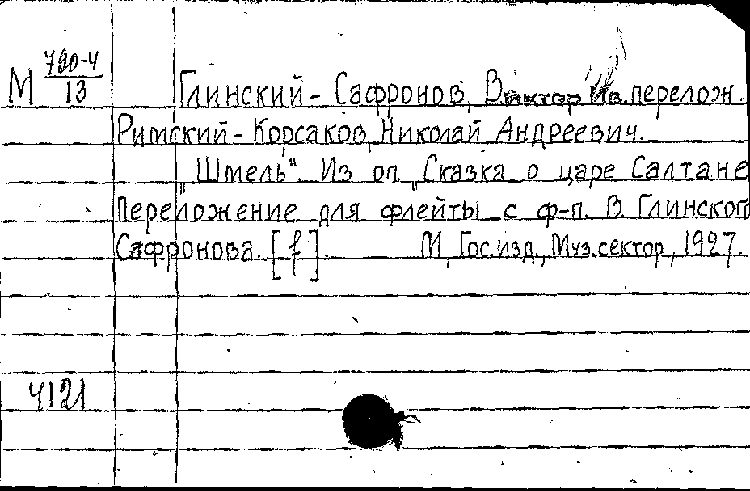 М 790-4
13
Глинский-Сафронов, Виктор Ив. перелож.
Римский-Корсаков, Николай Андреевич.
"Шмель". Из оп. "Сказка о царе Салтане
Переложение для флейты с ф-п. В. Глинского
Сафронова. [f]. М., Гос. изд., Муз. сектор, 1927.
4121